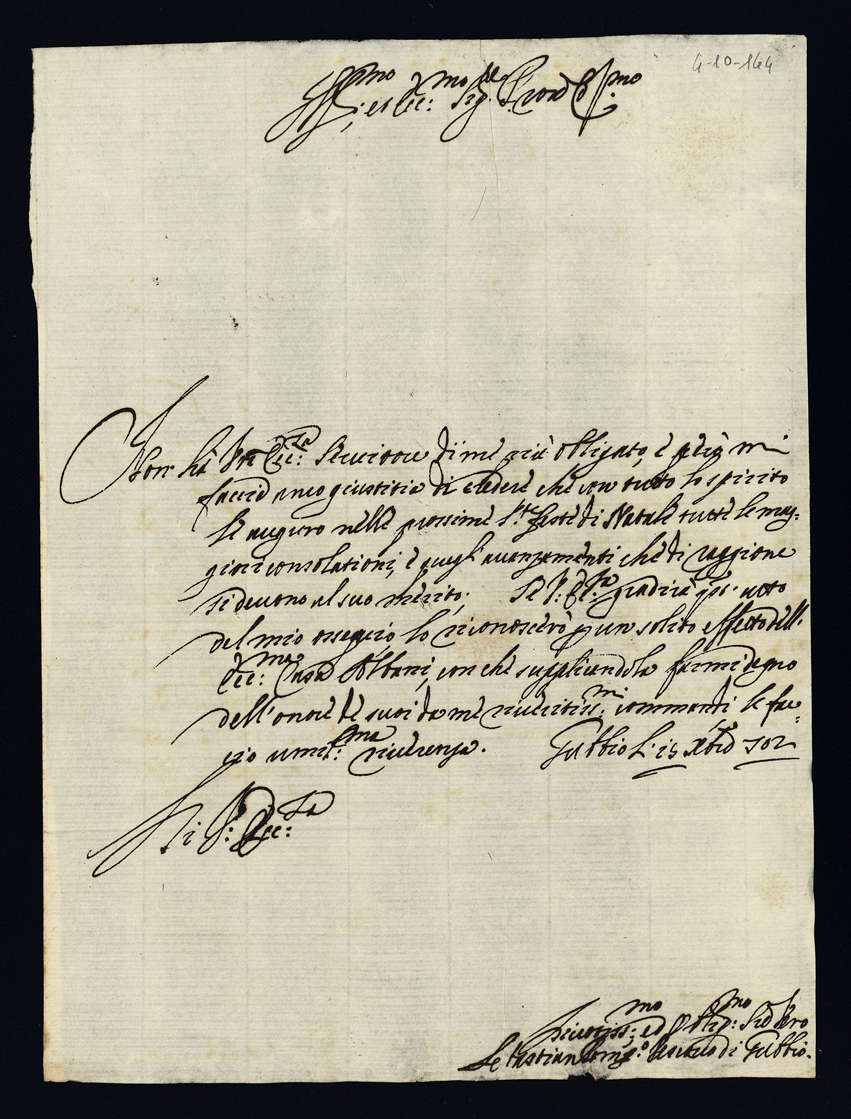 4-10-164
Ill.mo, et Ecc.mo Sig.re P.ron Col.mo
Non hà V.ra Ecc.za Servitore di me più obligato, e però mi
faccia anco giustitia di credere che con tutto lo spirito
le auguro nelle prossime S.te feste di Natale tutte le mag-
giori consolationi, e quegl'avanzamenti che di raggione
si devono al suo merito; Se V: Ecc.za gradirà q.to atto
del mio ossequio lo riconoscerò p un solito effetto dell'
Ecc.ma Casa Albani, con che supplicandola farmi degno
dell'onore de suoi da me riveritiss.mi commandi le fac-
cio umil.ma riverenza. Gubbio li 15 Xbre 702
Di V: Ecc.za
Devotiss.mo, ed Oblig.mo Ser.re vero
Sebastiano Vescovo di Gubbio.